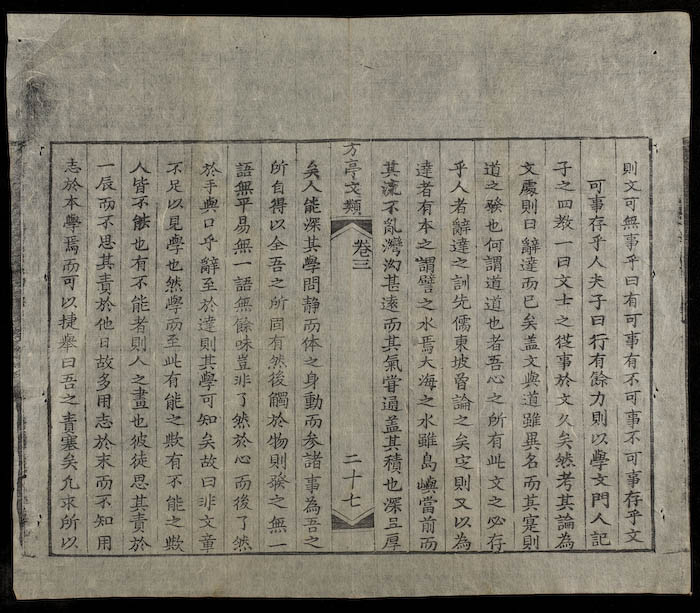 則文可無事乎曰有可事有不可事不可事存乎文
可事存乎人夫子曰行有餘力則以學文門人記
子之四教一曰文士之從事於文久矣然考其論為
文處則曰辭達而已矣盖文與道雖異名而其寔則
道之發也何謂道道也者吾心之所有此文之必存
乎人者辭達之訓先儒東坡曾論之矣寔則又以為
達者有本之謂譬之水焉大海之水雖島嶼當前而
其流不亂灣沏甚遠而其氣嘗通盖其積也深且厚
方亭文類
卷三
二十七
矣人能深其學問静而体之身動而参諸事為吾之
所自得以全吾之所固有然後觸於物則發之無一
語無平易無一語無餘味豈非了然於心而後了然
於手與口乎辭至於達則其學可知矣故曰非文章
不足以見學也然學而至此有能之歟有不能之歟
人皆不能也有不能者則人之畫也彼徒思其責於
一辰而不思其責於他日故多用志於末而不知用
志於本學焉而可以捷舉曰吾之責塞矣允求所以